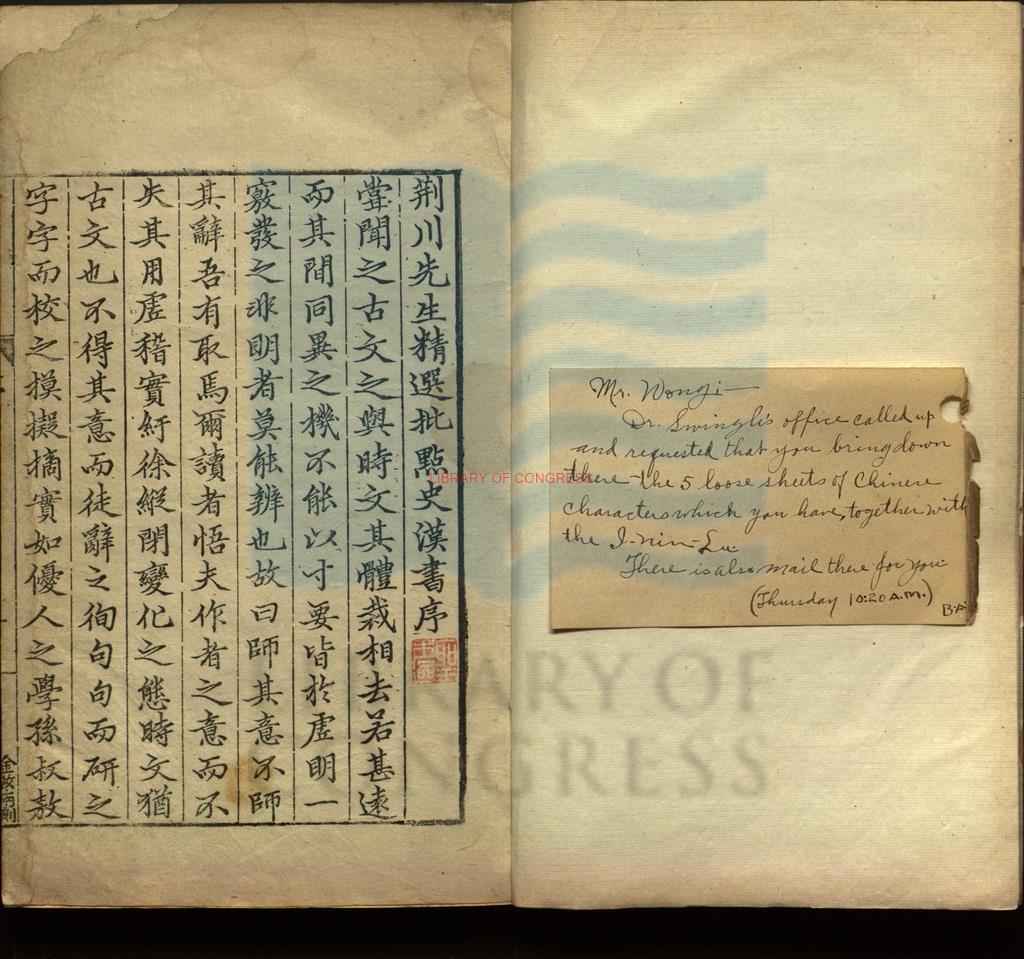 荆川先生精選批點史漢書序
嘗聞之古文之與時文其體裁相去若甚遠
而其間同異之機不能以寸要皆於虛明一
竅發之非明者莫能辨也故曰師其意不師
其辭吾有取焉爾讀者悟夫作者之意而不
失其用虛稽實紆徐縱閉變化之態時文猶
古文也不得其意而徒辭之徇句句而研之
字字而校之摸擬摘實如優人之學孫叔敖
Mr. Wongi—
Dr. Swingle's office called up
and requested that you bring down
there the 5 loose sheets of Chinese
characters which you have, together with
the I-nin-Lu.
There is also mail there for you
(Thursday 10:20 A.M.)
LIBRARY OF CONGRESS
LIBRARY OF
CONGRESS